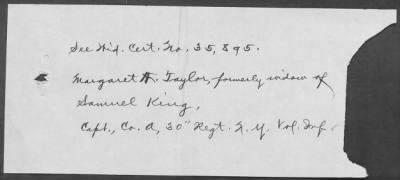 See Wid. Cert. No. 35,895.
Margaret A. Taylor, formerly widow of
Samuel King,
Capt., Co. A, 30" Regt. N. Y. Vol. Inf.